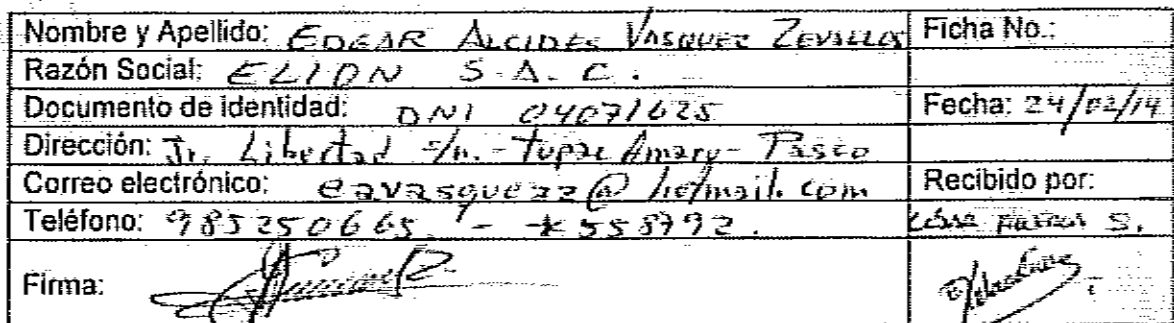 Nombre y Apellido: EDGAR ALCIDES VASQUEZ ZEVALLOS Ficha No.:
Razón Social: ELION S.A.C.
Documento de identidad: DNI 04071625 Fecha: 24/02/14
Dirección: Jr. Libertad s/n. - Tupac Amaru - Pasco
Correo electrónico: eavasquezz@hotmail.com Recibido por:
Teléfono: 985250665. - *558792. S.
Firma: